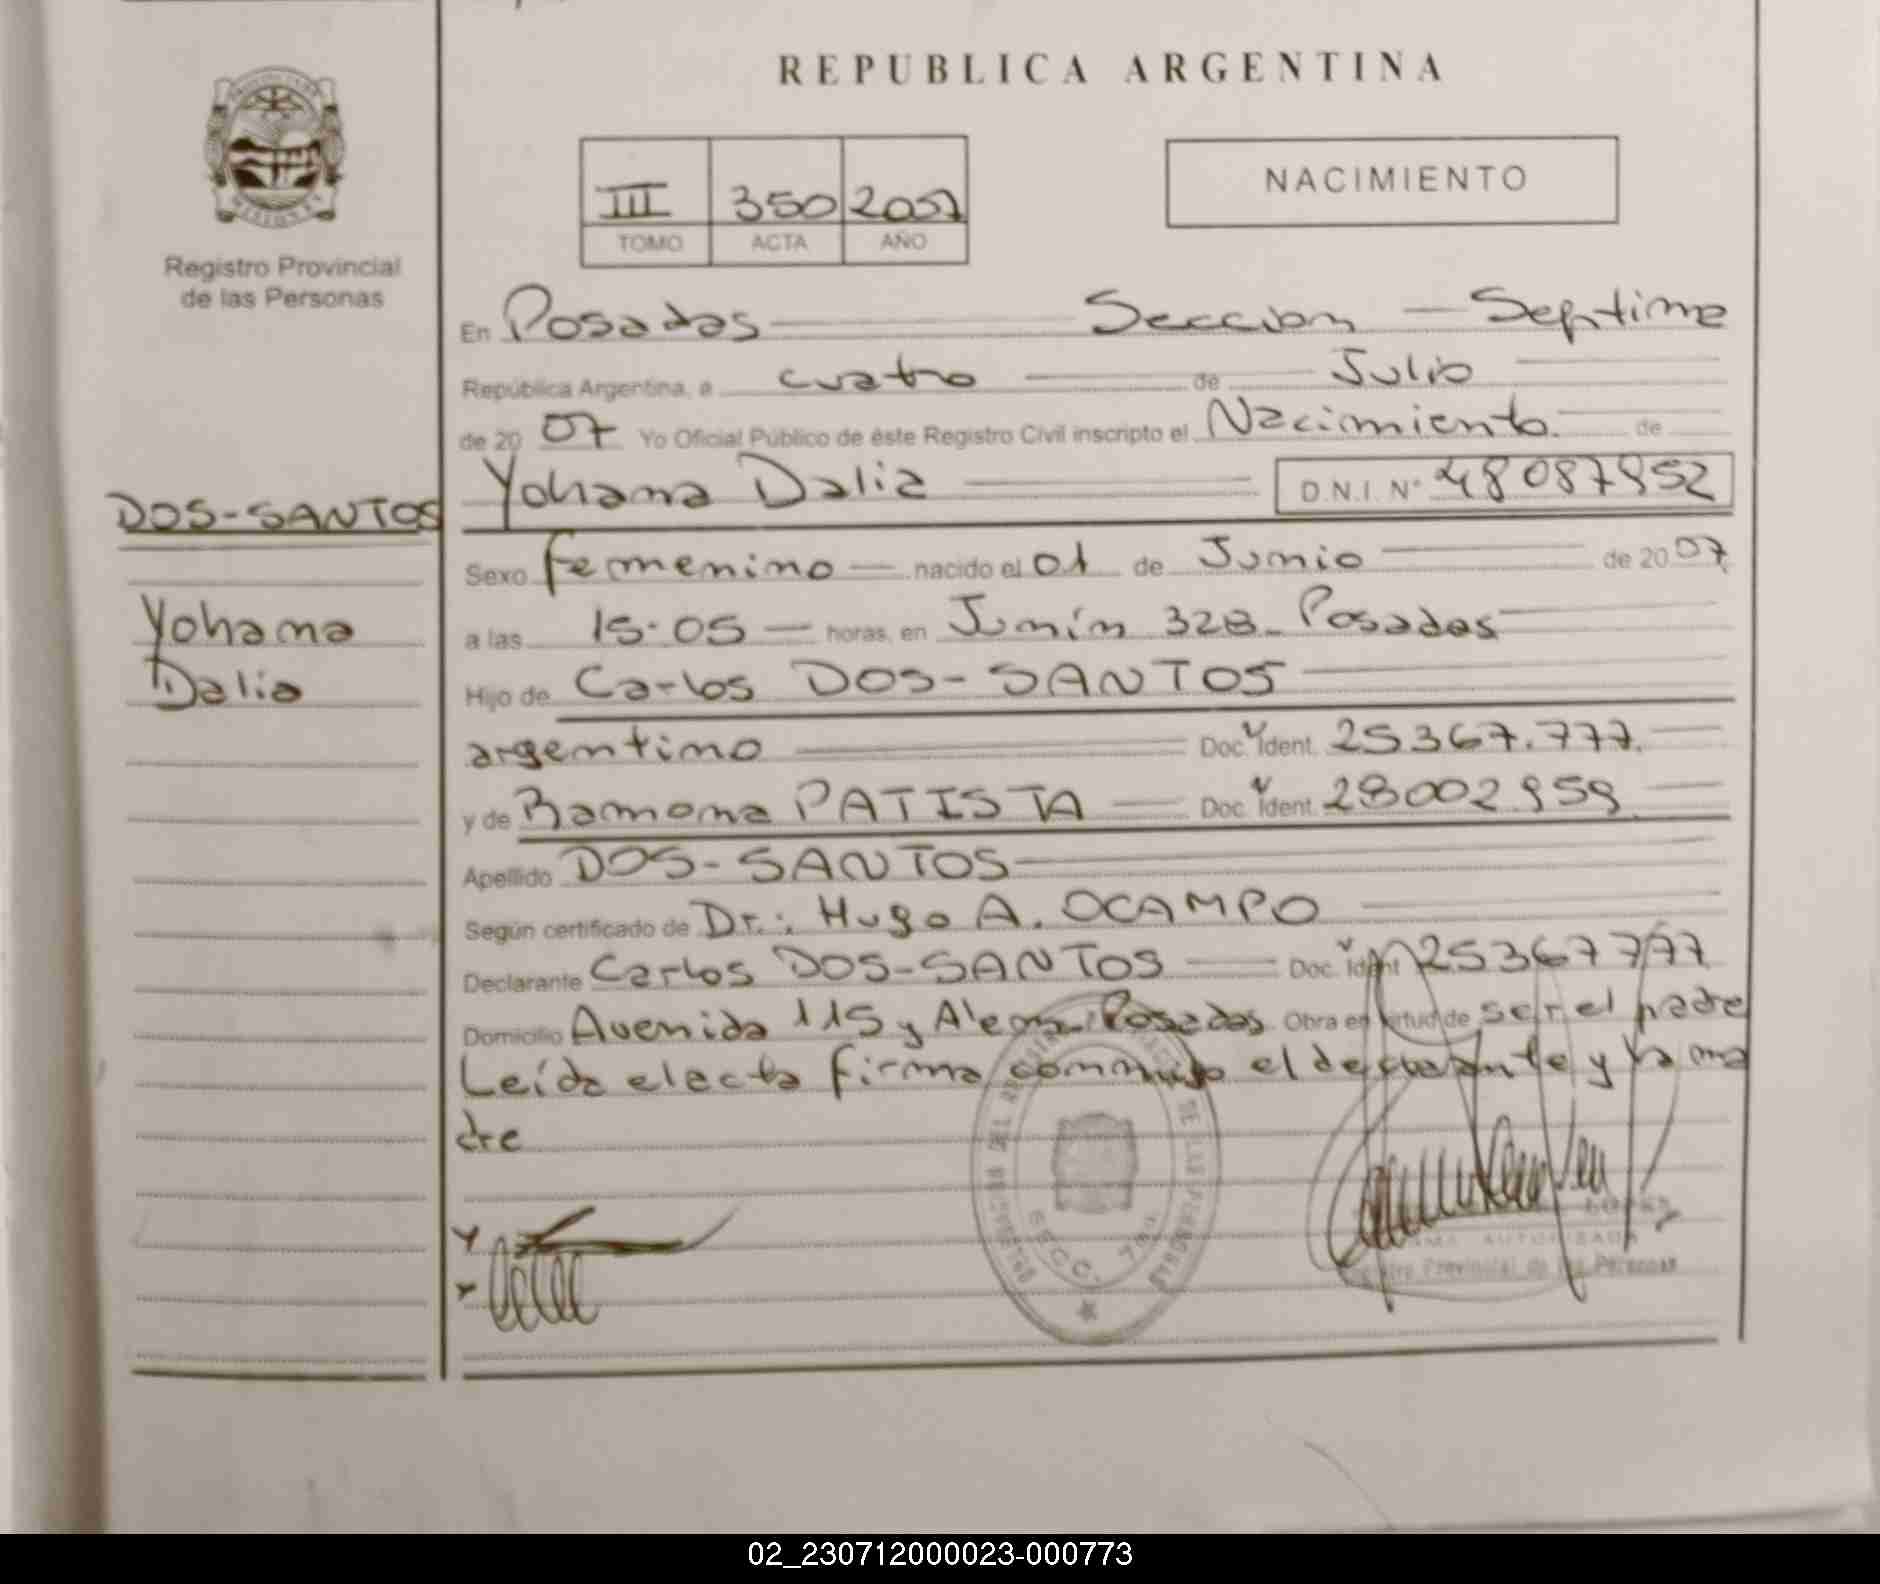 REPUBLICA ARGENTINA
III 350 2007
TOMO ACTA AÑO
NACIMIENTO
Registro Provincial
de las Personas
En Posadas Seccion Septima
República Argentina, a cuatro de Julio
de 20 07 Yo Oficial Público de éste Registro Civil inscripto el Nacimiento de
Yohana Dalia D.N.I. N° 48087952
DOS-SANTOS
Yohana
Dalia
Sexo femenino nacido el 01 de Junio de 20 07
a las 15.05 horas, en Junín 328. Posadas
Hijo de Carlos DOS-SANTOS
argentino Doc. Ident. 25367.777.
y de Ramona PATISTA Doc. Ident. 28002959
Apellido DOS-SANTOS
Según certificado de Dr.: Hugo A. OCAMPO
Declarante Carlos DOS-SANTOS Doc. Ident 25367777
Domicilio Avenida 115 y Alem Posadas Obra en virtud de ser el padre
Leída el acta firma conmigo el declarante y la ma
dre
SECC. 7
FIRMA AUTORIZADA
Registro Provincial de las Personas
02_230712000023-000773